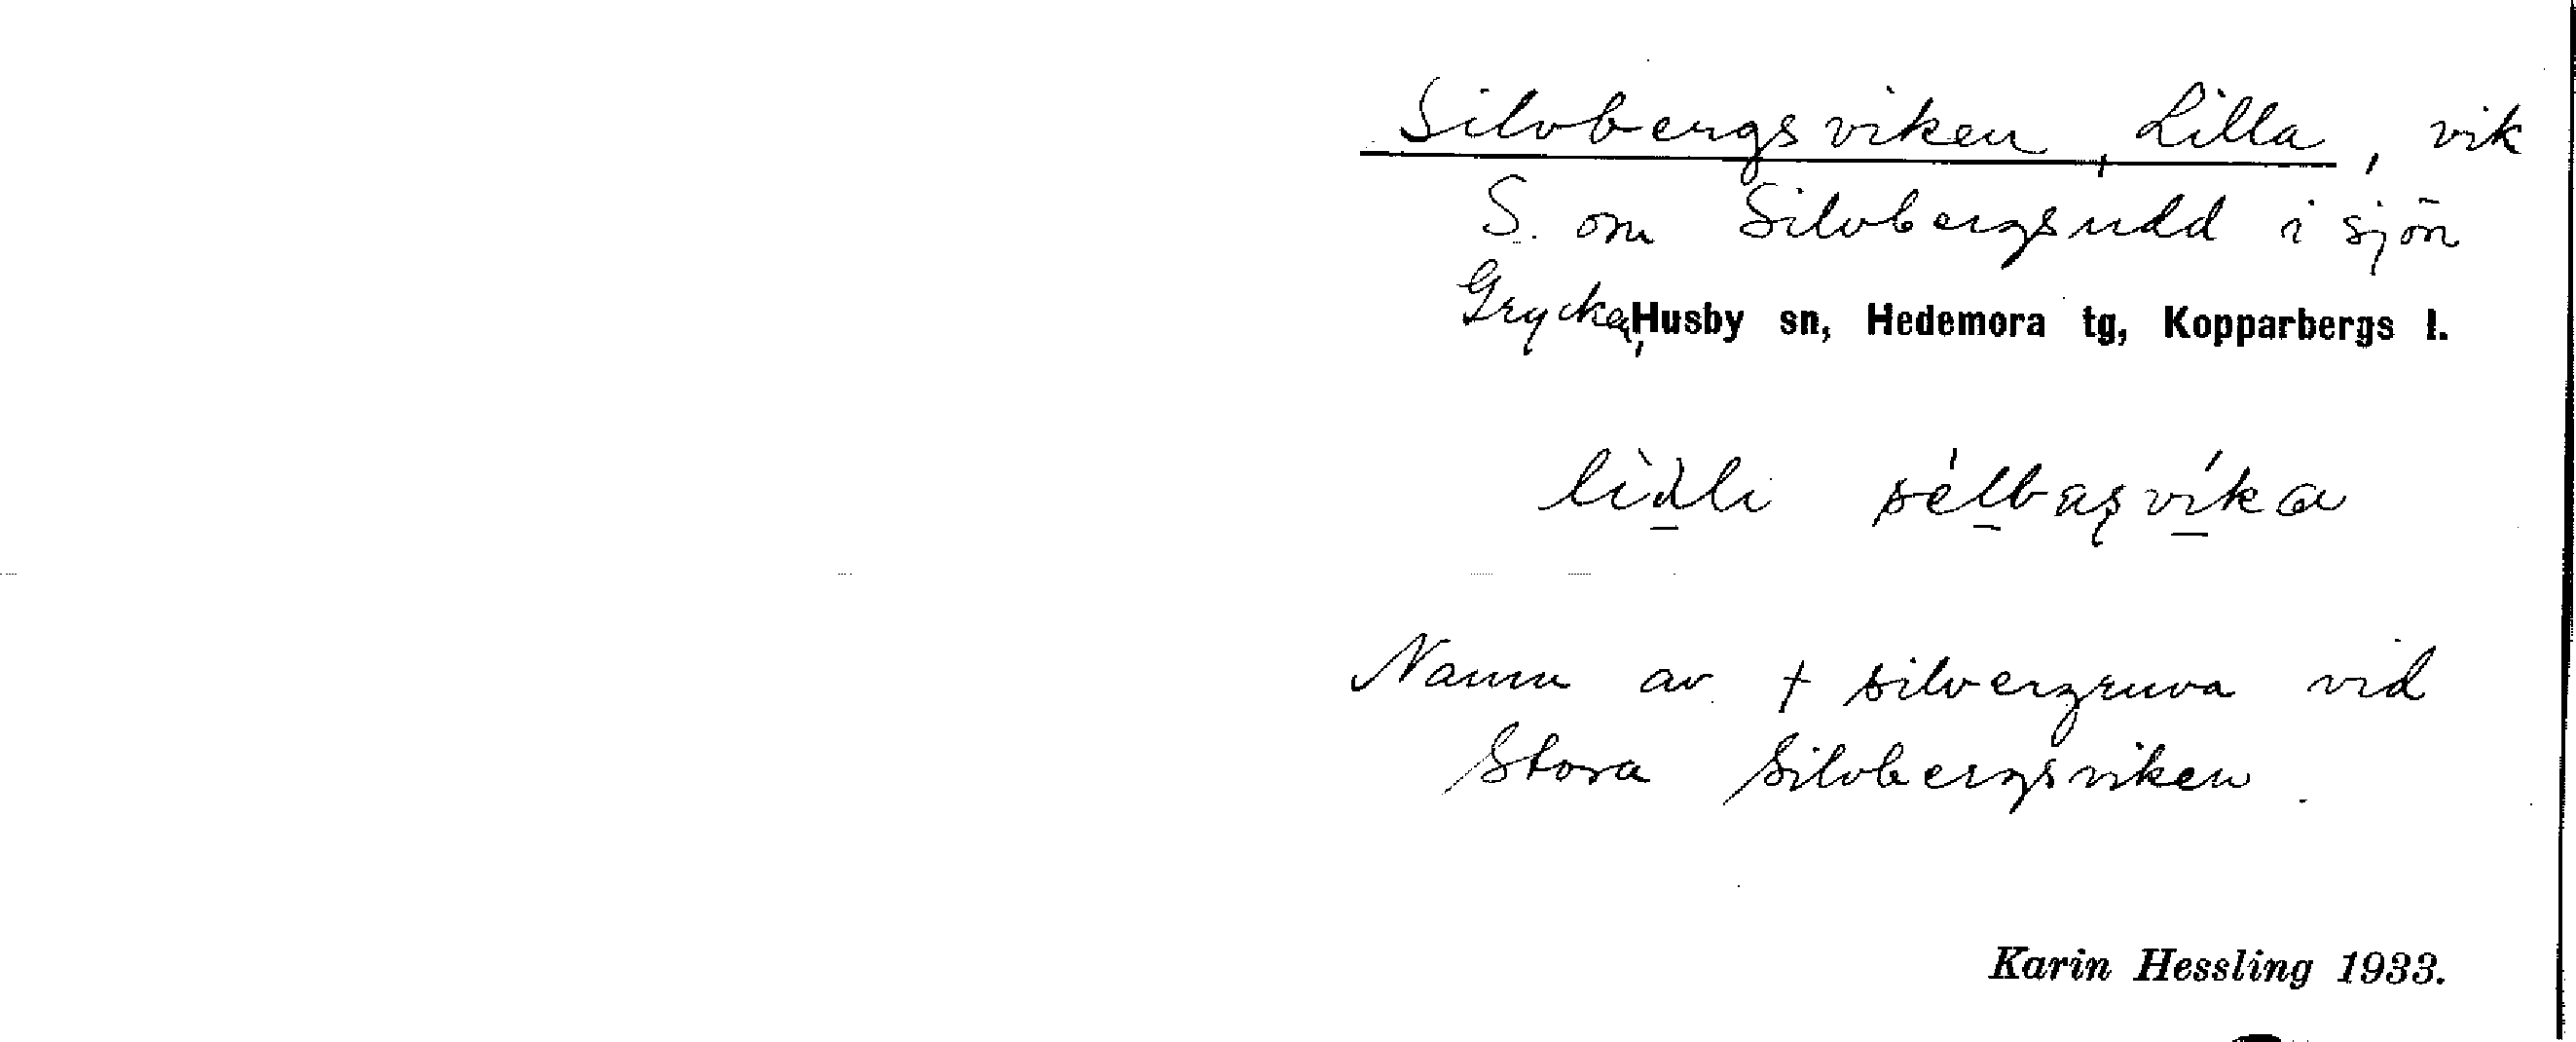 Silvbergsviken, Lilla, vik
S. om Silvbergsudd i sjön
Grycken, Husby sn, Hedemora tg, Kopparbergs l.
Namn av † silvergruva vid
Stora Silvbergsviken.
Karin Hessling 1933.